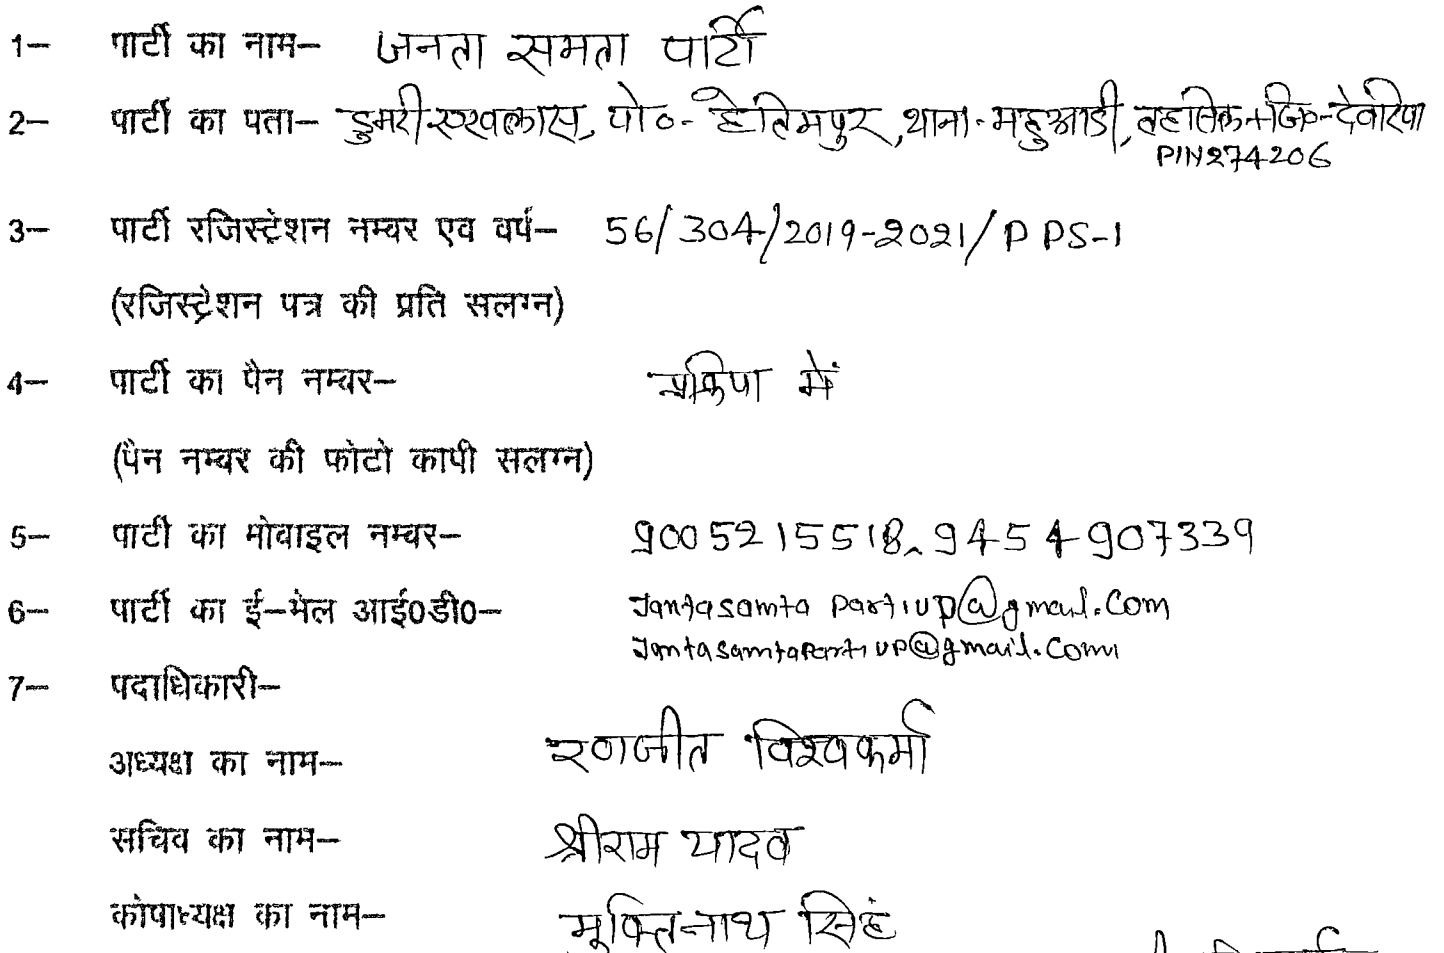 1— पार्टी का नाम— जनता समता पार्टी
2— पार्टी का पता— डुमरी एखलास, पो०- हेतिमपुर, थाना- महुआडी, तहसिल+जि०-देवरिया
PIN 274206
3— पार्टी रजिस्ट्रेशन नम्बर एव वर्ष— 56/304/2019-2021/PPS-1
(रजिस्ट्रेशन पत्र की प्रति सलग्न)
4— पार्टी का पैन नम्बर— प्रक्रिया में
(पैन नम्बर की फोटो कापी सलग्न)
5— पार्टी का मोवाइल नम्बर— 9005215518, 9454907339
6— पार्टी का ई—मेल आई0डी0— Jantasamta partiup@gmail.com
JantasamtaPartiup@gmail.com
7— पदाधिकारी—
अध्यक्ष का नाम— रणजीत विश्वकर्मा
सचिव का नाम— श्रीराम यादव
कोषाध्यक्ष का नाम— मुक्तिनाथ सिहं